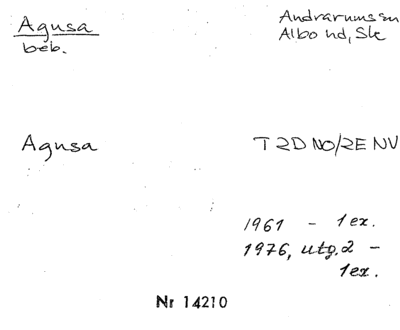 Agusa
beb.
Andrarums sn
Albo hd, Sk
Agusa
T 2D NO/2E NV
1961 - 1 ex.
1976, utg. 2 -
1 ex.
Nr 14210